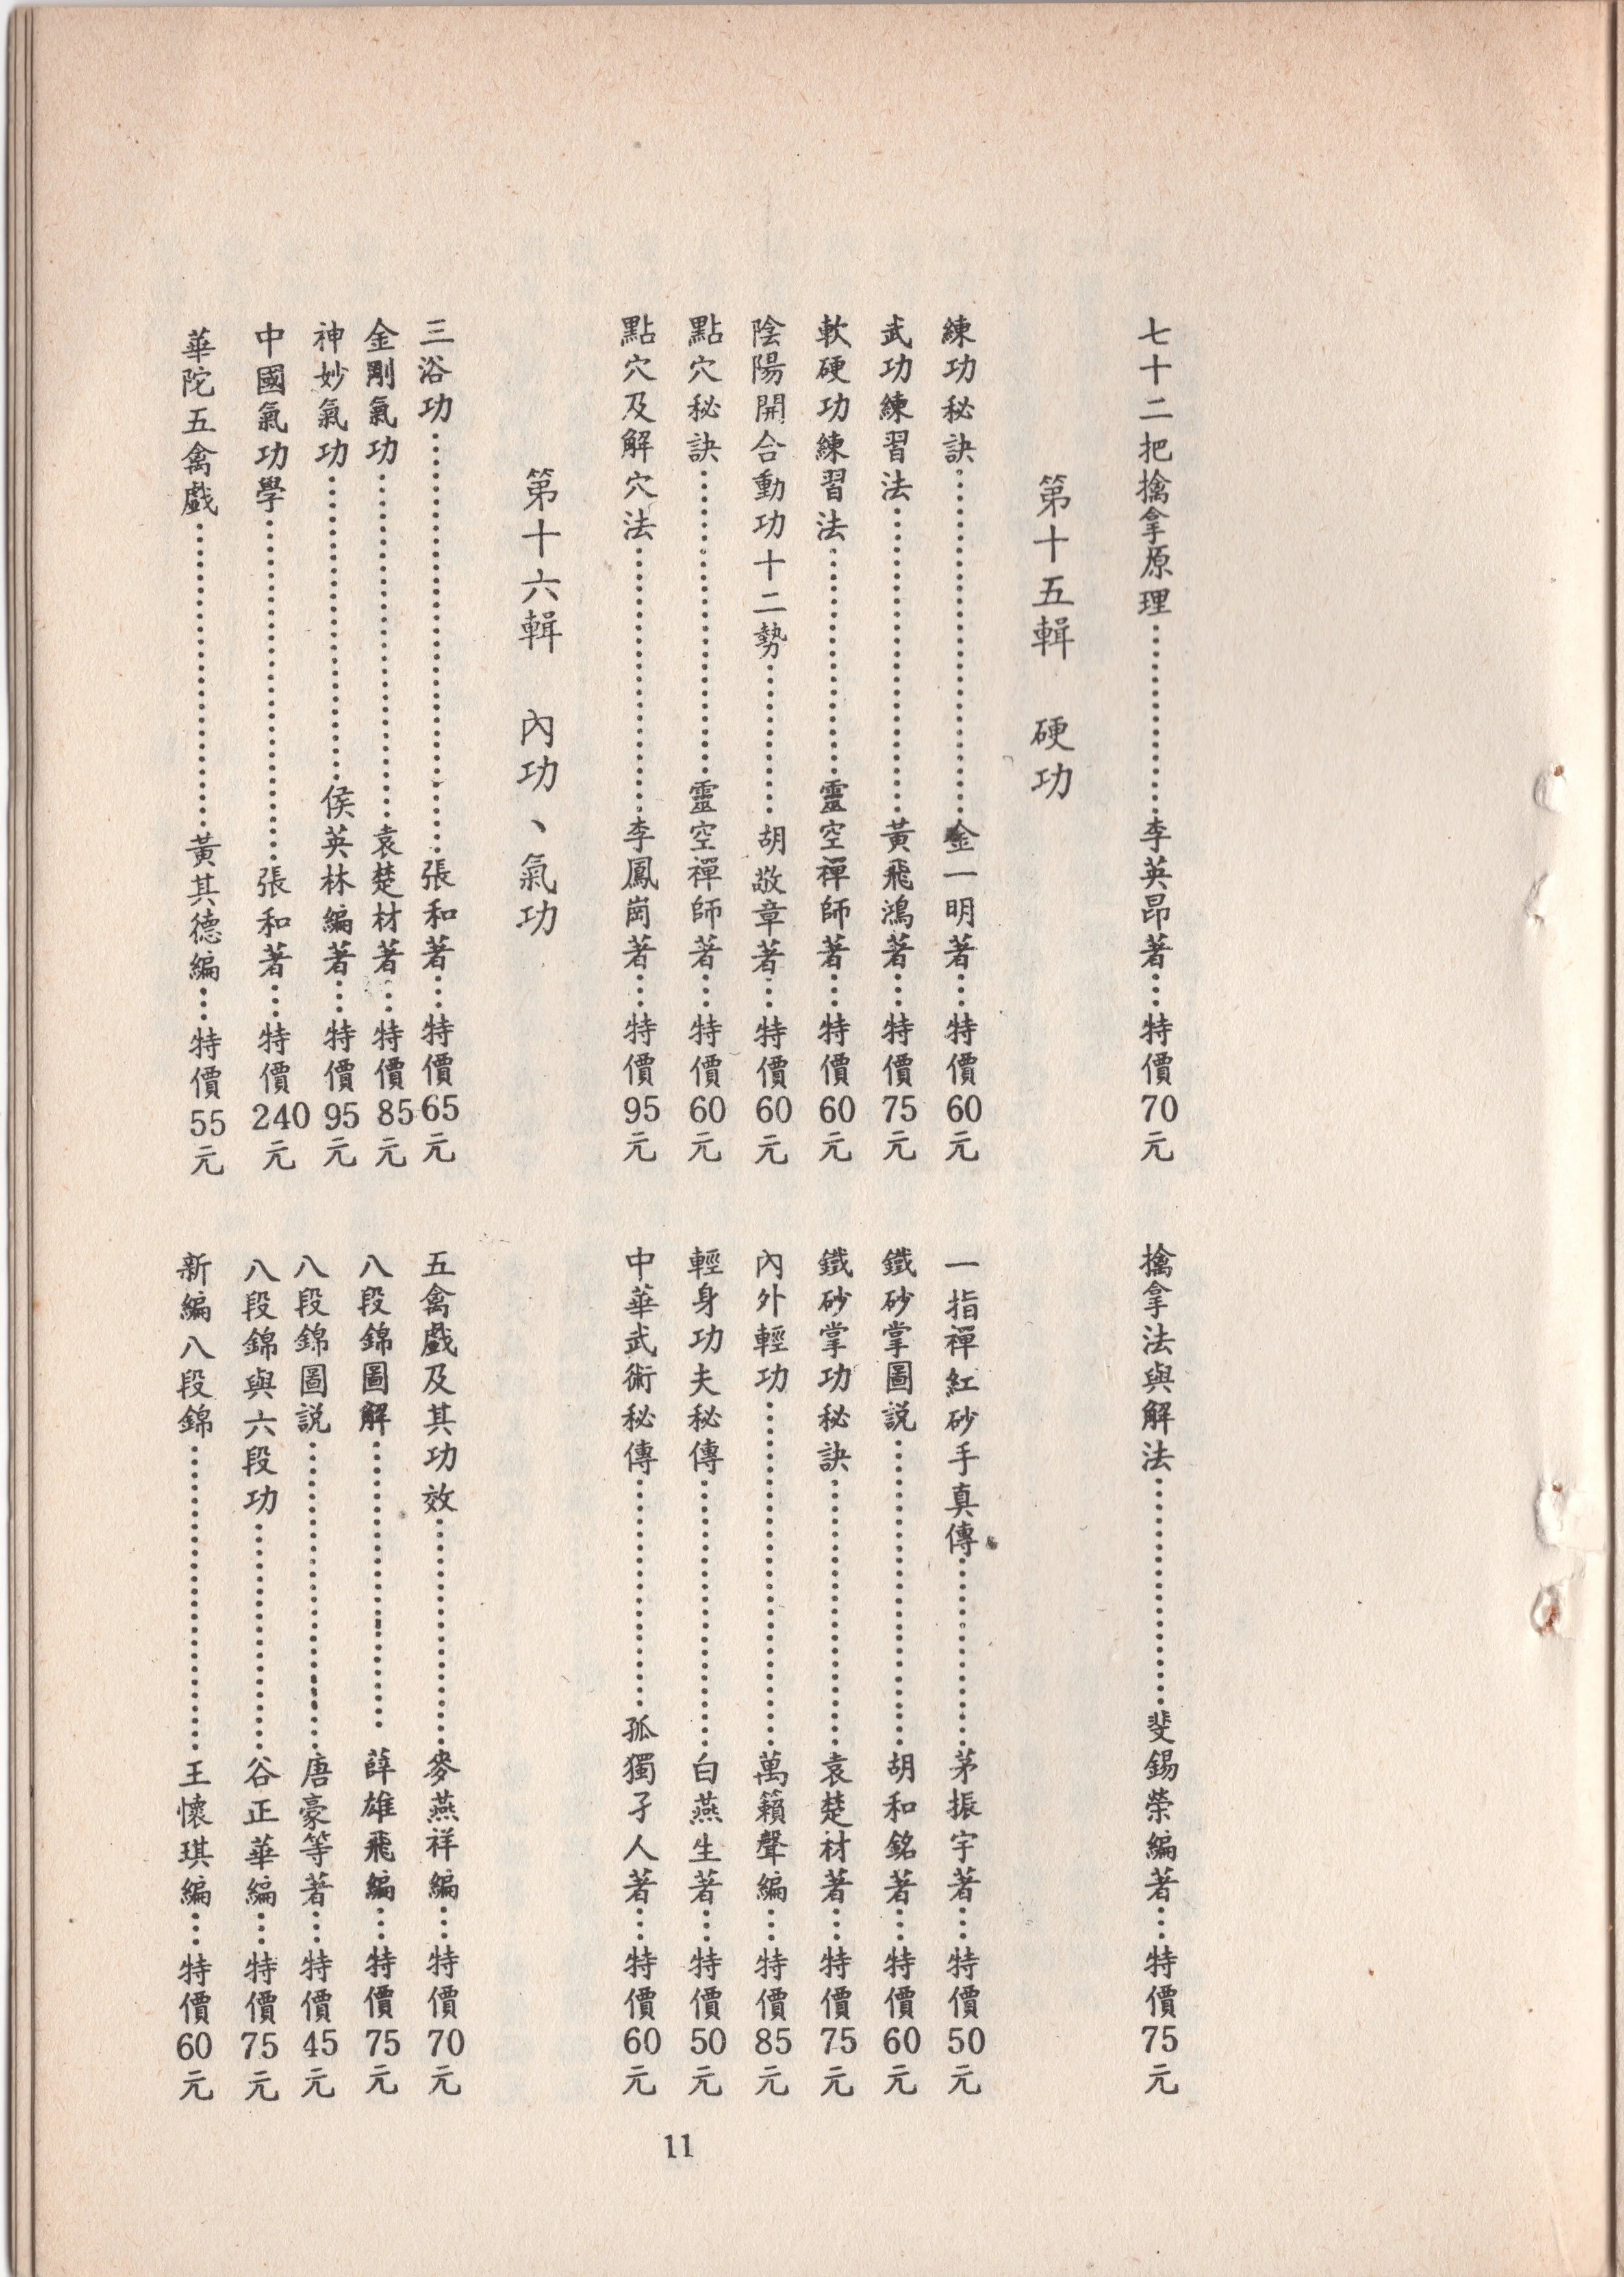 七十二把擒拿原理……李英昂著…特價70元
擒拿法與解法……斐錫榮編著…特價75元
第十五輯 硬功
練功秘訣……金一明著…特價60元
武功練習法……黃飛鴻著…特價75元
軟硬功練習法……靈空禪師著…特價60元
陰陽開合動功十二勢……胡敬章著…特價60元
點穴秘訣……靈空禪師著…特價60元
點穴及解穴法……李鳳崗著…特價95元
一指禪紅砂手真傳……茅振宇著…特價50元
鐵砂掌圖説……胡和銘著…特價60元
鐵砂掌功秘訣……袁楚材著…特價75元
內外輕功……萬籟聲編…特價85元
輕身功夫秘傳……白燕生著…特價50元
中華武術秘傳……孤獨孑人著…特價60元
第十六輯 內功、氣功
三浴功……張和著…特價65元
金剛氣功……袁楚材著…特價85元
神妙氣功……侯英林編著…特價95元
中國氣功學……張和著…特價240元
華陀五禽戲……黃其德編…特價55元
五禽戲及其功效……麥燕祥編…特價70元
八段錦圖解……薛雄飛編…特價75元
八段錦圖説……唐豪等著…特價45元
八段錦與六段功……谷正華編…特價75元
新編八段錦……王懷琪編…特價60元
11